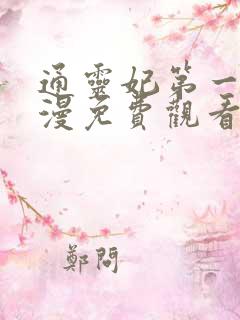 通靈妃第一
漫免費觀看
鄭問